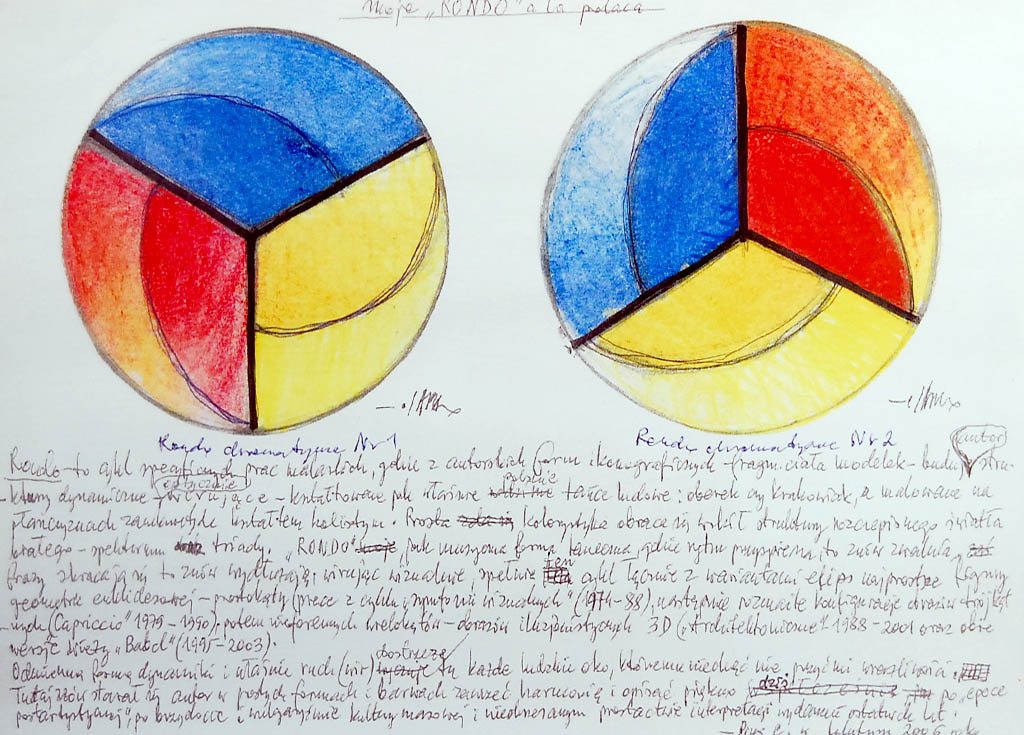 Moje „RONDO" a la polaca
Rondo chromatyczne Nr 1
Rondo chromatyczne Nr 2
autor
Rondo – to cykl specyficznych prac malarskich, gdzie z autorskich form ikonograficznych – fragm. ciała modelek – buduje stru-
optycznie polskie
ktury dynamiczne – wirujące – kształtowane jak właśnie tańce ludowe: oberek czy krakowiak, a malowane na
płaszczyznach zamkniętych kształtem kolistym. Prosta kolorystyka obraca się wokół struktury rozszczepionego światła
białego – spektrum triady. „RONDO" jak muzyczna forma taneczna, gdzie rytm przyspiesza, to znów zwalnia,
frazy skracają się to znów wydłużają, wirując wizualnie, spełnia ten cykl łącznie z wariantami elips najprostsze
geometrii euklidesowej – prostokąty (prace z cyklu „symfonii wizualnych" (1974-88), następnie rozmaite konfiguracje obrazów trójkąt-
nych („Capriccio" 1979-1990), potem wieloramiennych wielokątów – obrazów iluzjonistycznych 3D („Architektoniczne" 1988-2001 oraz
wersje wieży „Babel" (1995-2003).
dostrzeże
Odmienną formę dynamiki i właśnie ruch (wir) tu każde ludzkie oko, któremu niechęć nie przyćmi wrażliwości.
Tutaj znów starał się autor w prostych formach i barwach zawrzeć harmonię i opisać piękno dziś po „epoce
postartystycznej", po brzydocie i wulgaryzmie kultury masowej i prostactwie interpretacji wydarzeń ostatnich lat.